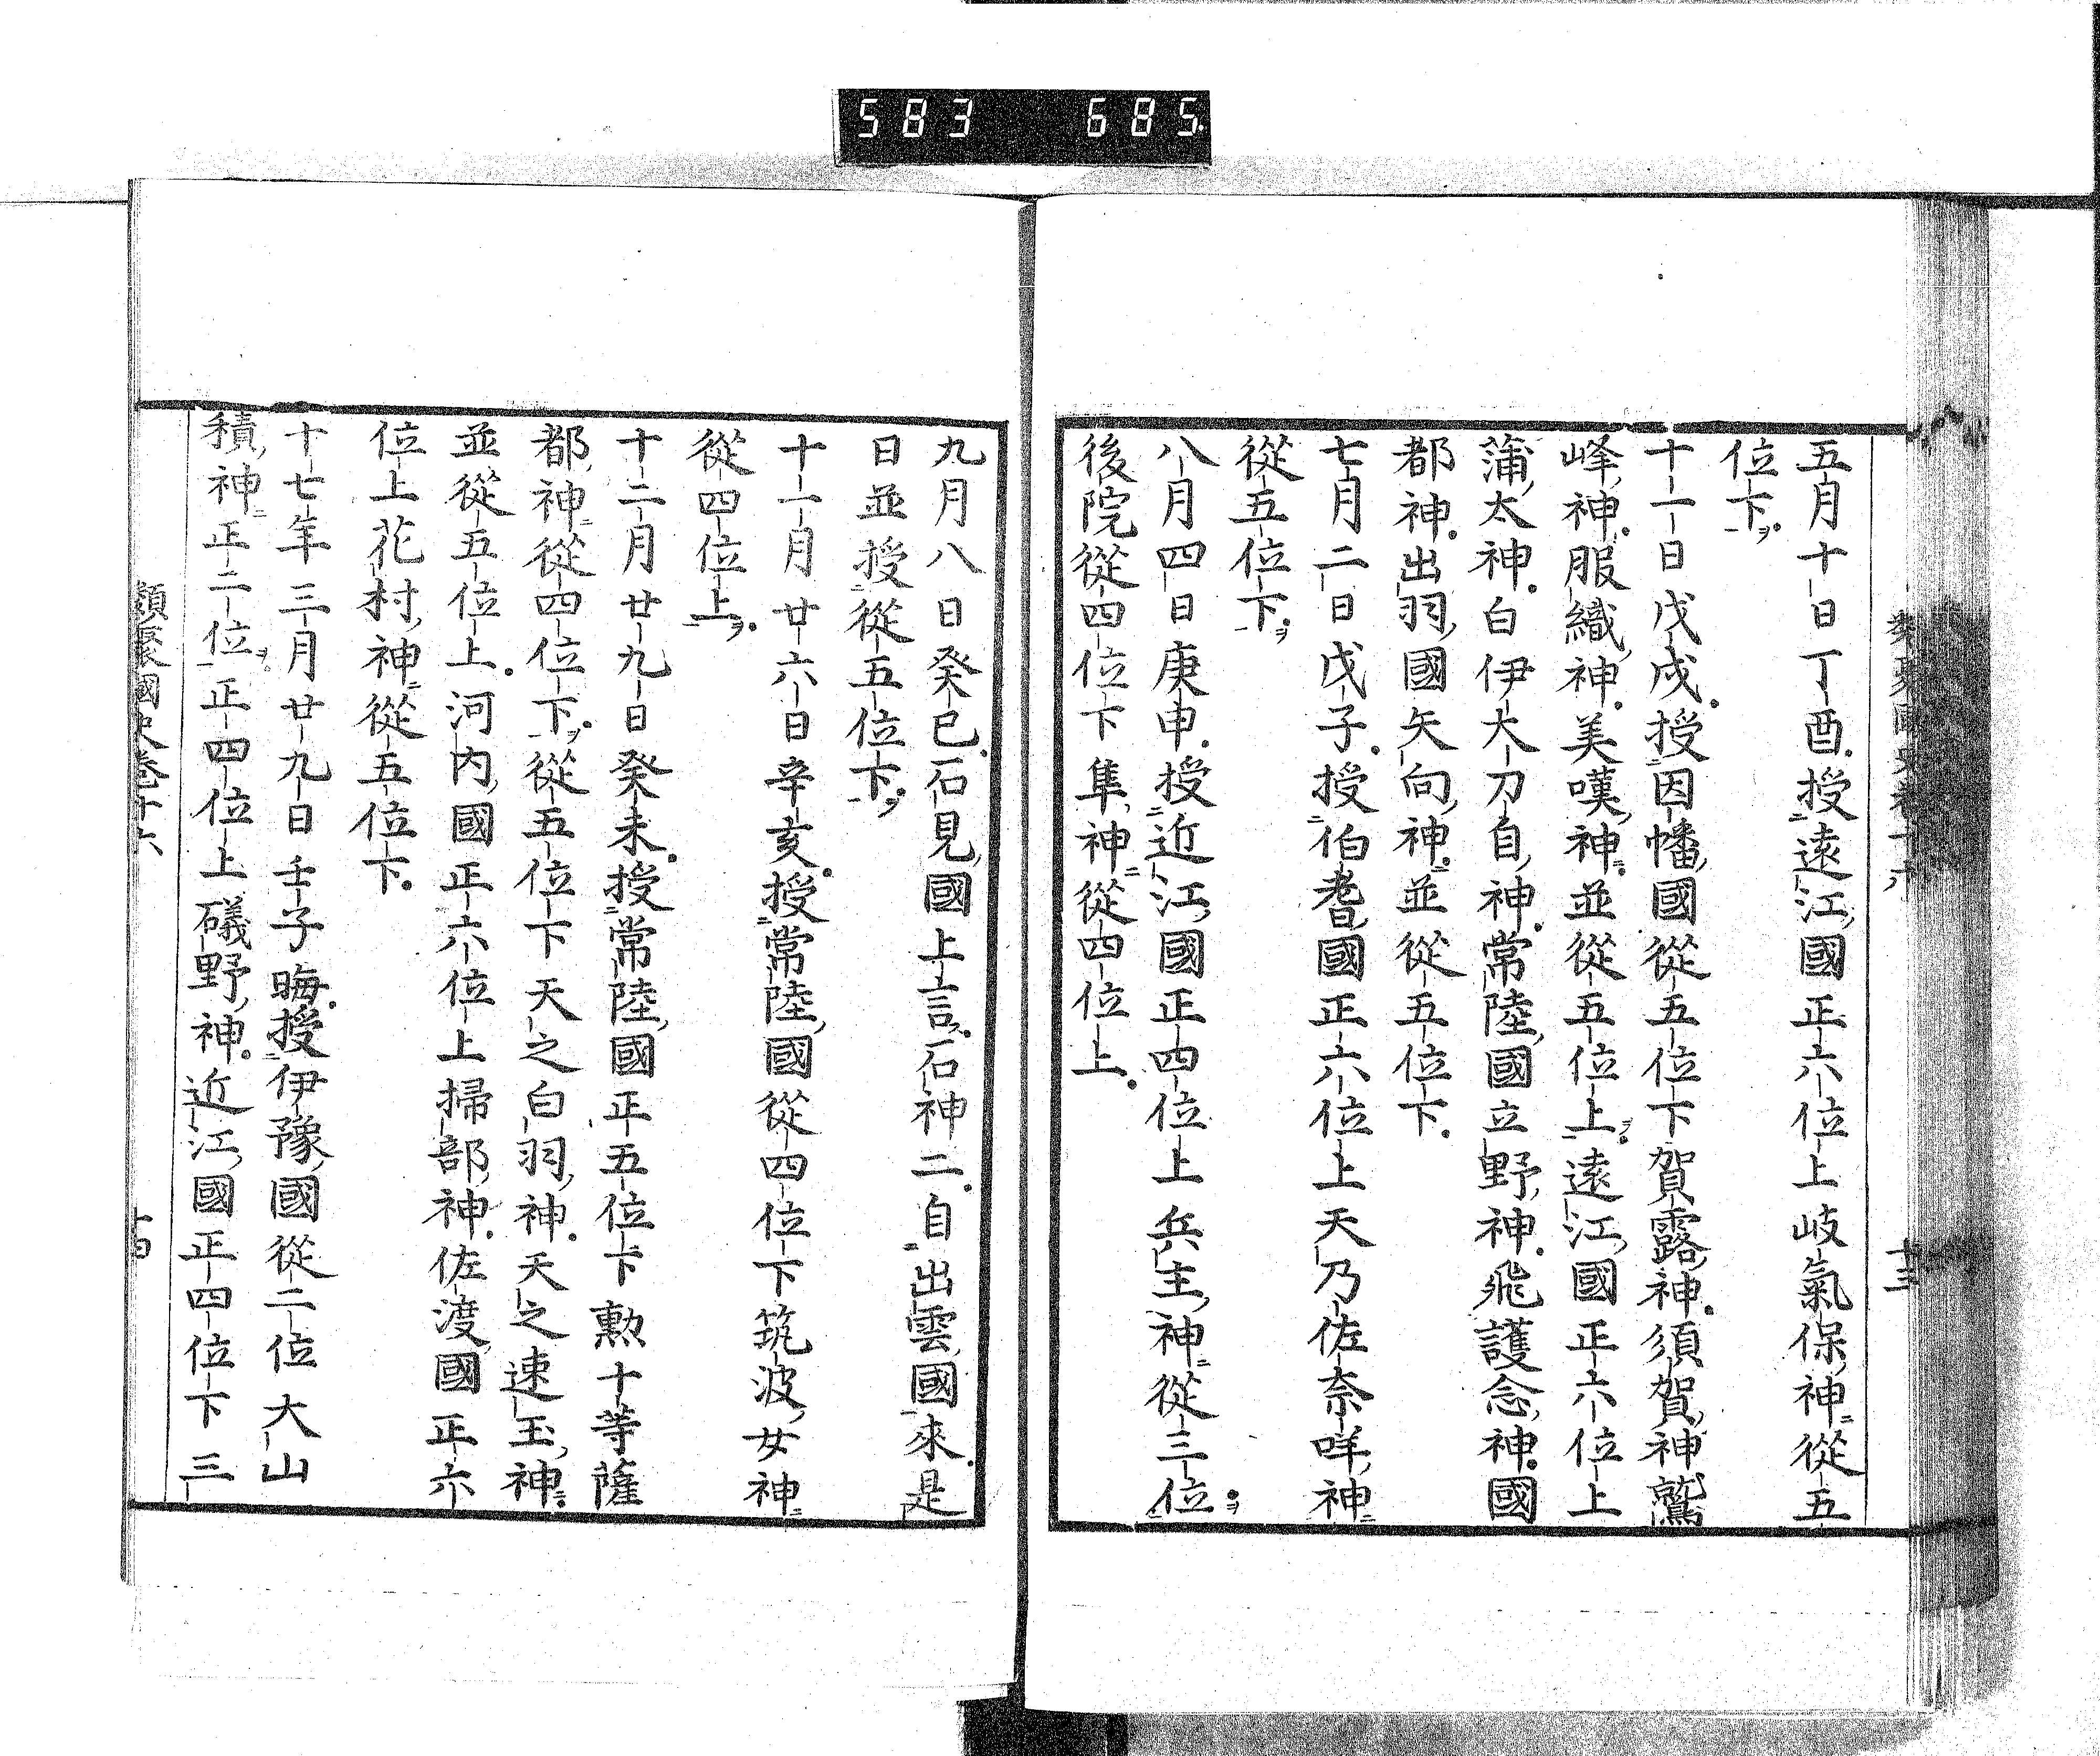 583 685
五月十日丁酉授遠江國正六位上岐氣保神從五
位下
十一日戊戌授因幡國從五位下賀露神須賀神鷲
峰神服織神美嘆神並從五位上遠江國正六位上
蒲太神白伊大刀自神常陸國立野神飛護念神國
都神出羽國矢向神並從五位下
七月二日戊子授伯耆國正六位上天乃佐奈咩神
從五位下
八月四日庚申授近江國正四位上兵主神從三位
後院從四位下隼神從四位上
九月八日癸巳石見國上言石神二自出雲國來是
日並授從五位下
十一月廿六日辛亥授常陸國從四位下筑波女神
從四位上
十二月廿九日癸未授常陸國正五位下勲十等薩
都神從四位下從五位下天之白羽神天之速玉神
並從五位上河內國正六位上掃部神佐渡國正六
位上花村神從五位下
十七年三月廿九日壬子晦授伊豫國從二位大山
積神正二位正四位上礒野神近江國正四位下三
類聚國史卷十六